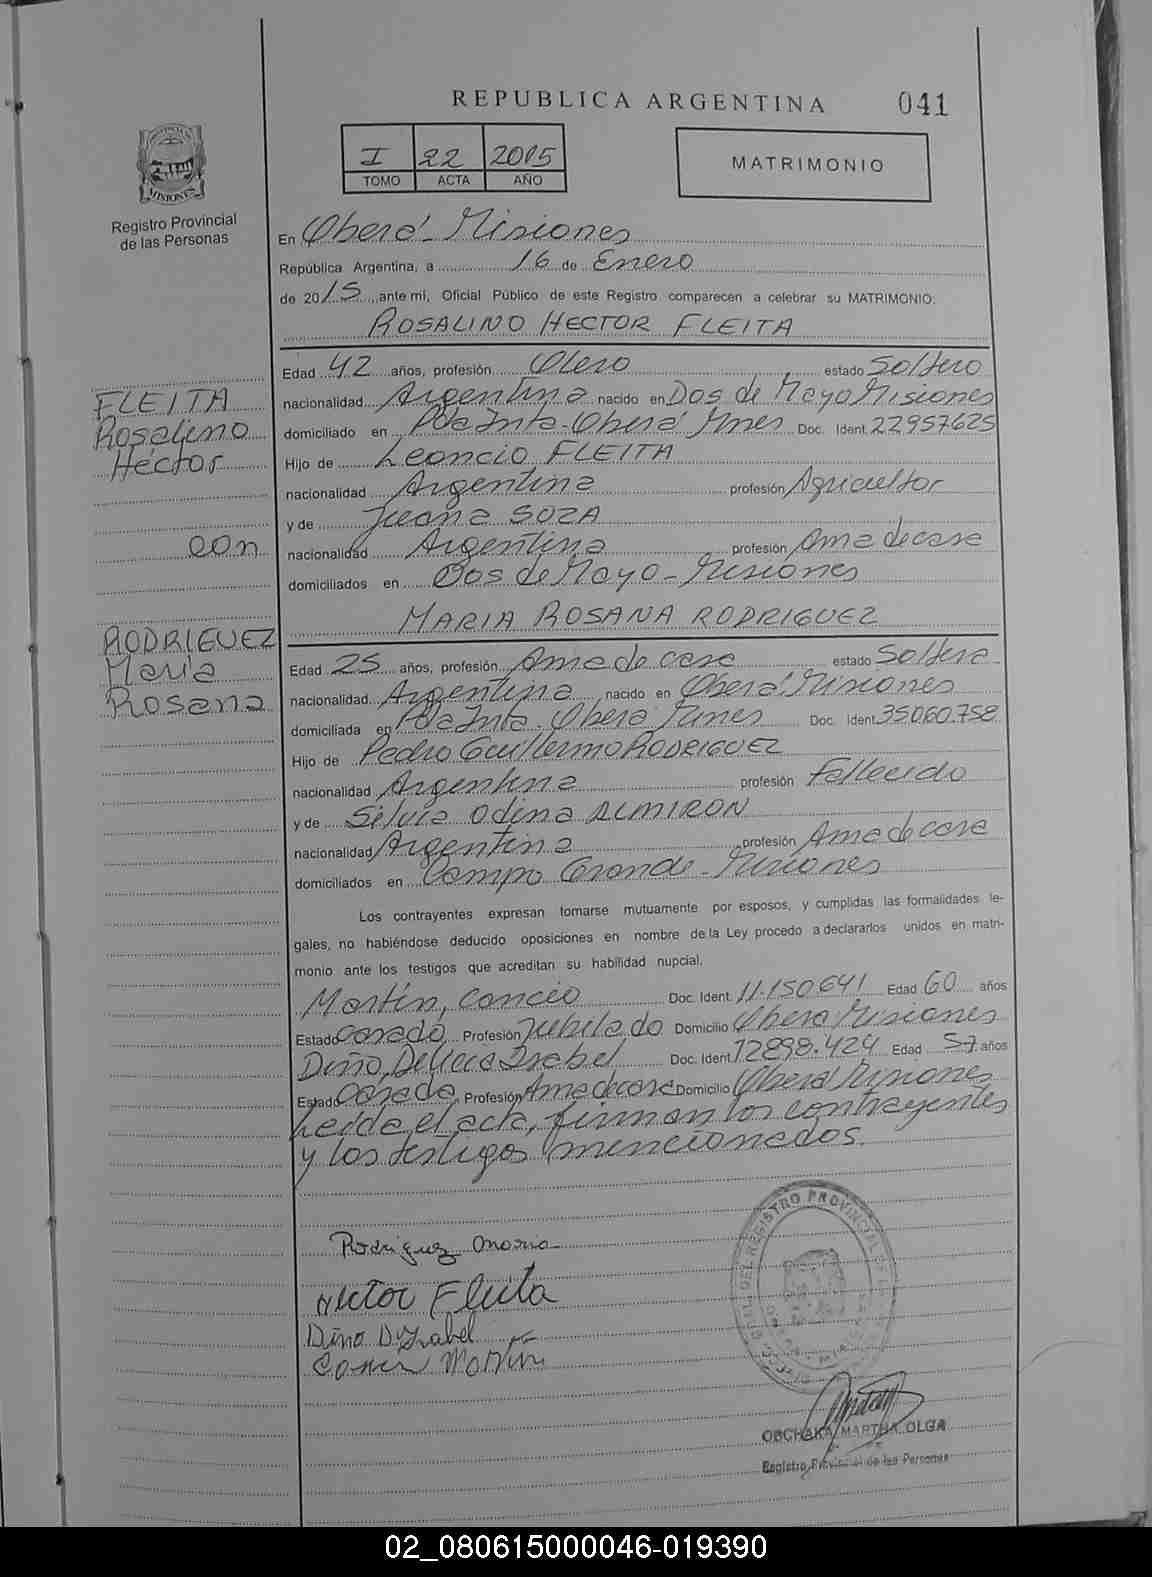 REPUBLICA ARGENTINA 041
PROVINCIA DE
MISIONES
Registro Provincial
de las Personas
I 22 2015
TOMO ACTA AÑO
MATRIMONIO
En Oberá - Misiones
República Argentina, a 16 de Enero
de 2015 ante mi, Oficial Público de este Registro comparecen a celebrar su MATRIMONIO:
ROSALINO HECTOR FLEITA
FLEITA
Rosalino
Héctor
con
RODRIGUEZ
María
Rosana
Edad 42 años, profesión Olero estado Soltero
nacionalidad Argentina nacido en Dos de Mayo Misiones
domiciliado en Pda Inta - Oberá Mnes Doc. Ident. 22957625
Hijo de Leoncio FLEITA
nacionalidad Argentina profesión Agricultor
y de Juana SOZA
nacionalidad Argentina profesión Ama de casa
domiciliados en Dos de Mayo - Misiones
MARIA ROSANA RODRIGUEZ
Edad 25 años, profesión Ama de casa estado Soltera
nacionalidad Argentina nacido en Oberá Misiones
domiciliada en Pda Inta - Oberá Mnes Doc. Ident. 35.060.758
Hijo de Pedro Guillermo RODRIGUEZ
nacionalidad Argentina profesión Fallecido
y de Silvia Odina ALMIRON
nacionalidad Argentina profesión Ama de casa
domiciliados en Campo Grande - Misiones
Los contrayentes expresan tomarse mutuamente por esposos, y cumplidas las formalidades le-
gales, no habiéndose deducido oposiciones en nombre de la Ley procedo a declararlos unidos en matri-
monio ante los testigos que acreditan su habilidad nupcial.
Martín, Doc. Ident. 11.150641 Edad 60 años
Estado casado Profesión Jubilado Domicilio Oberá Misiones
Diño, Isabel Doc. Ident. 12898.424 Edad 57 años
Estado casada Profesión Ama de casa Domicilio Oberá Misiones
Leída el acta, firman los contrayentes
y los testigos mencionados.
Rodriguez Maria
Hector Fleita
Diño D Isabel
Martin
DIRECC. GRAL. DEL REGISTRO PROVINCIAL
OBCHAKA MARTHA OLGA
Registro Provincial de las Personas
02_080615000046-019390